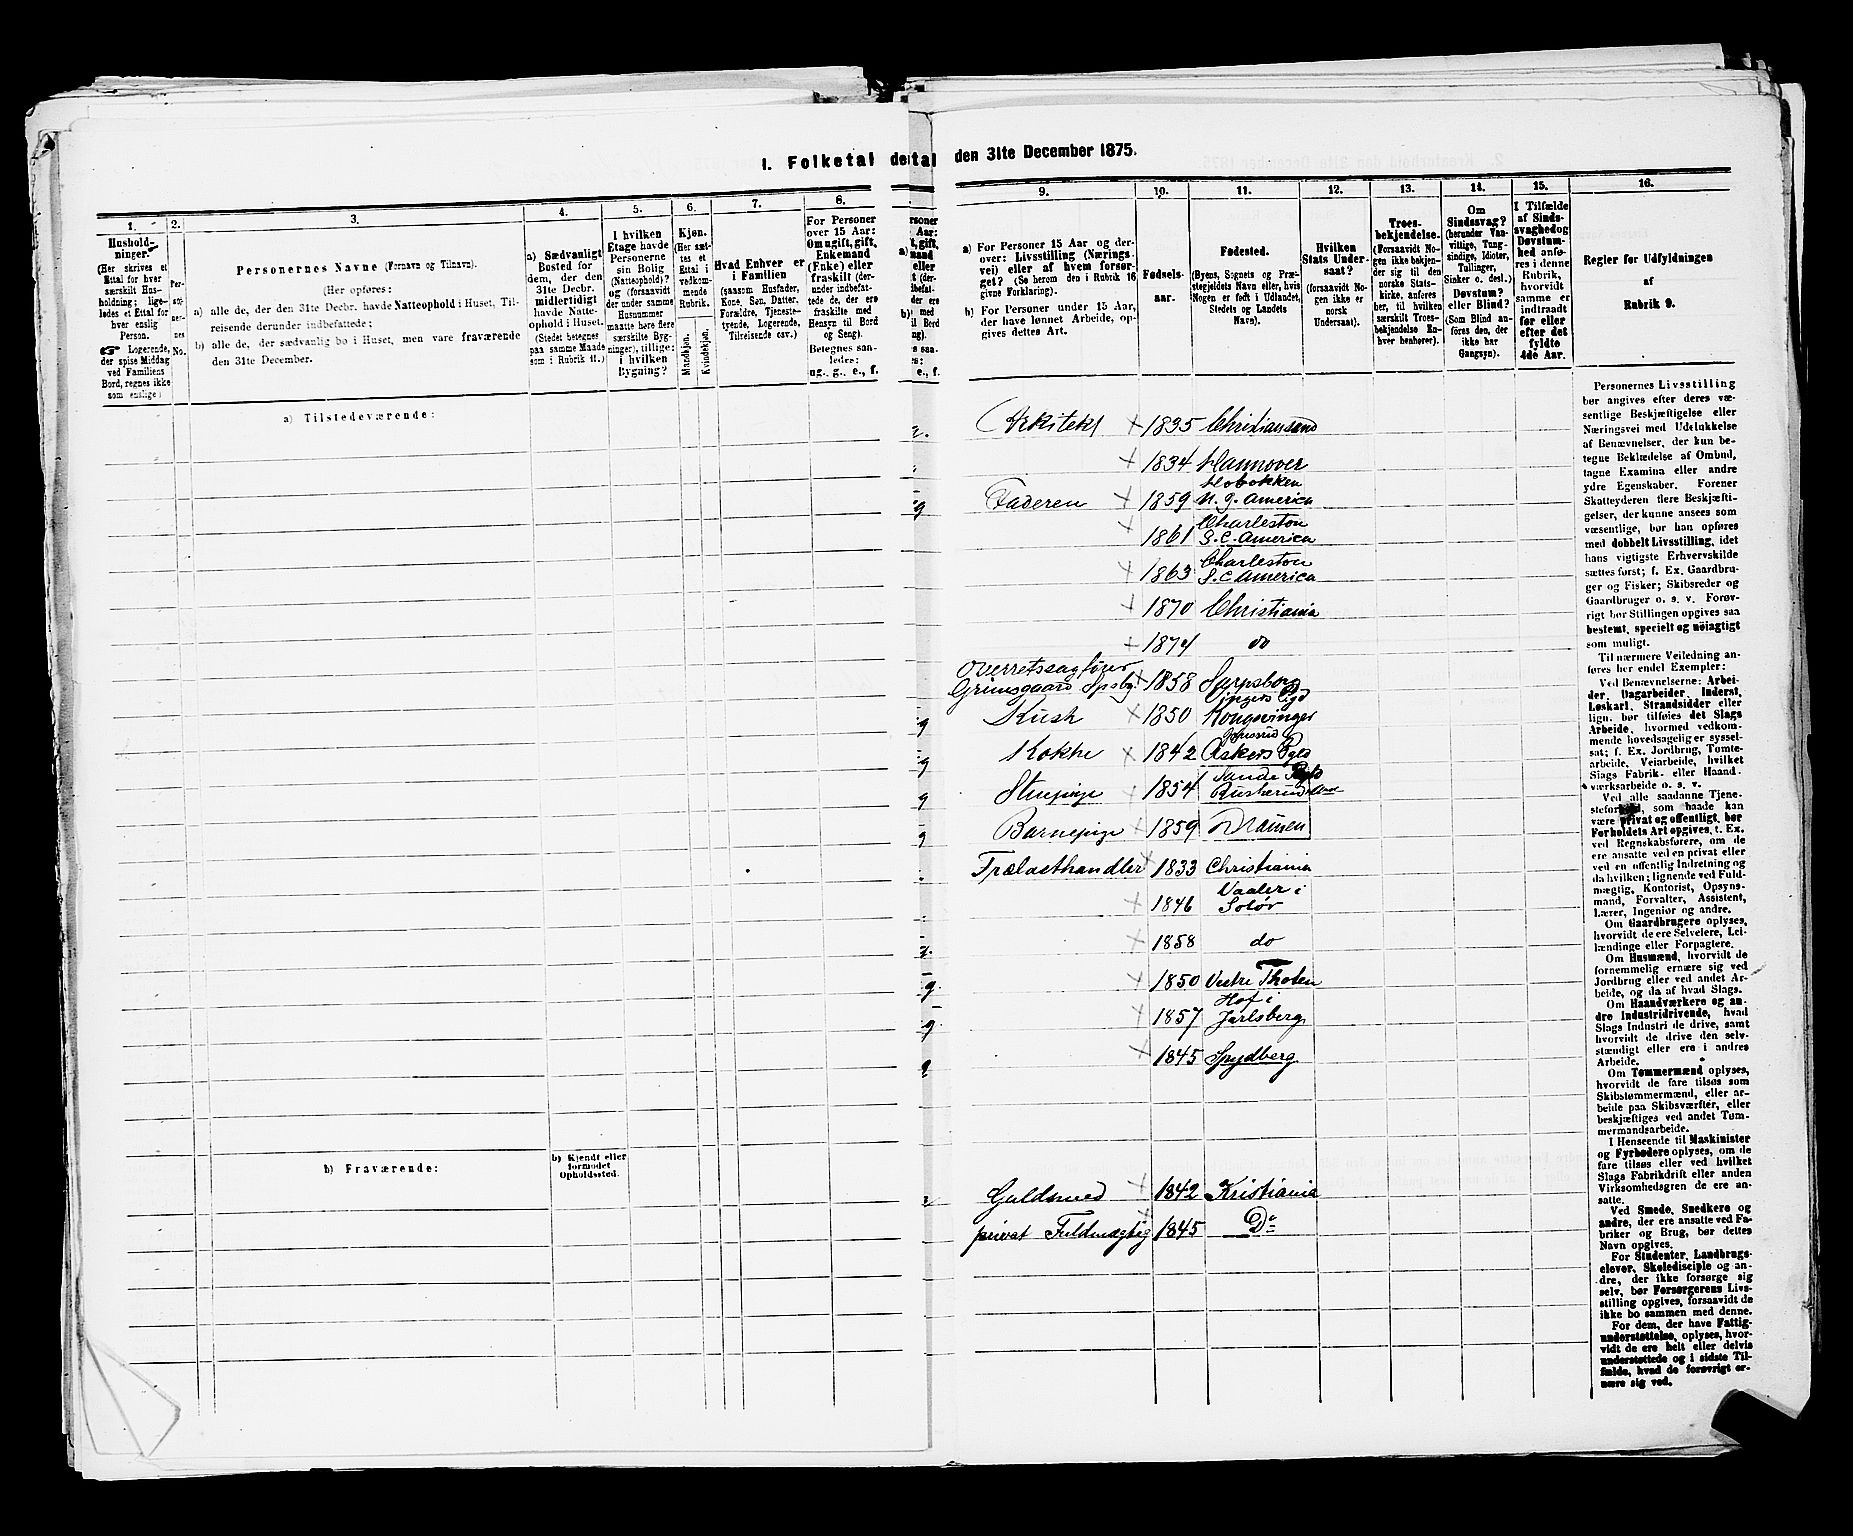 1. Folketal
detal
den 31te December 1875.
1.
2.
3.
4.
5.
6.
7.
8.
Hushold-
ninger.
(Her skrives et
Ettal for hver
særskilt Hus-
holdning; lige-
ledes et Ettal for
hver enslig
Person.
☞ Logerende,
der spise Middag
ved Familiens
Bord, regnes ikke
som enslige)
Per-
No.
Personernes Navne (Fornavn og Tilnavn).
(Her opføres:
a) alle de, der den 31te Decbr. havde Natteophold i Huset, Til-
reisende derunder indbefattede;
b) alle de, der sædvanlig bo i Huset, men vare fraværende
den 31te December.
a) Sædvanligt
Bosted for
dem, der den
31te Decbr.
midlertidigt
havde Natte-
ophold i Huset.
(Stedet betegnes
paa samme Maade
som i Rubrik 11.)
I hvilken
Etage havde
Personerne
sin Bolig
(Natteophold)?
og (forsaavidt
der under samme
Husnummer
maatte høre flere
særskilte Byg-
ninger), tillige:
i hvilken
Bygning?
Kjøn.
(Her sæt-
tes et
Ettal i
vedkom-
mende
Rubrik.
Mandkjøn.
Kvindekjøn.
Hvad Enhver er
i Familien
(saasom Husfader,
Kone, Søn, Datter,
Forældre, Tjeneste-
tyende, Logerende,
Tilreisende osv.)
For Personer
over 15 Aar:
Om ugift, gift,
Enkemand
(Enke) eller
fraskilt (der-
under indbefat-
tede de, der ere
fraskilte med
Hensyn til Bord
og Seng).
Betegnes saa-
ledes:
ug., g., e., f.
a) Tilstedeværende:
b) Fraværende:
b) Kjendt eller
formodet
Opholdssted.
9.
10.
11.
12.
13.
14.
15.
16.
a) For Personer 15 Aar og der-
over: Livsstilling (Nærings-
vei) eller af hvem forsør-
get? (Se herom den i Rubrik 16
givne Forklaring).
b) For Personer under 15 Aar,
der have lønnet Arbeide, op-
gives dettes Art.
Fødsels-
aar.
Fødested.
(Byens, Sognets og Præ-
stegjeldets Navn eller, hvis
Nogen er født i Udlandet,
Stedets og Landets
Navn).
Hvilken
Stats Under-
saat?
(forsaavidt No-
gen ikke er
norsk
Undersaat).
Troes-
bekjendelse.
(Forsaavidt No-
gen ikke bekjen-
der sig til den
norske Stats-
kirke, anføres
her, til hvilken
særskilt Troes-
bekjendelse En-
hver henhører).
Om
Sindssvag?
(herunder Van-
vittige, Tung-
sindige, Idioter,
Tullinger,
Sinker o. desl.)
Døvstum?
eller Blind?
(Som Blind an-
føres den, der
ikke har
Gangsyn).
I Tilfælde
af Sinds-
svaghed og
Døvstum-
hed anfø-
res i denne
Rubrik,
hvorvidt
samme er
indtraadt
før eller
efter det
fyldte
4de Aar.
Regler for Udfyldningen
af
Rubrik 9.
Arkitekt 1835 Christiansand
1834 Hannover
Faderen 1859 Hobokken
N. J. America
1861 Charleston
S.C. America
1863 Charleston
S.C. America
1870 Christiania
1874 do
Overretssagfører
Grimsgaard Spsbg. 1858 Sarpsborg
Kusk 1850 Kongsvinger
Kokke 1842 Askers Pgld
Stuepige 1854 Sande
Barnepige 1859 Dramen
Trælasthandler 1833 Christiania
1846 Vaaler i
Solør
1858 do
1850 Vestre Thoten
1857 Hof i
Jarlsberg
1845 Spydberg
Guldsmed 1842 Kristiania
privat Fuldmægtig 1845 Do
Personernes Livsstilling
bør angives efter deres væ-
sentlige Beskjæftigelse eller
Næringsvei med Udelukkelse
af Benævnelser, der kun be-
tegne Beklædelse af Ombud,
tagne Examina eller andre
ydre Egenskaber. Forener
Skatteyderen flere Beskjæfti-
gelser, der kunne ansees som
væsentlige, bør han opføres
med dobbelt Livsstilling, idet
hans vigtigste Erhvervskilde
sættes først; f. Ex. Gaardbru-
ger og Fisker; Skibsreder og
Gaardbruger o. s. v. Forøv-
rigt bør Stillingen opgives saa
bestemt, specielt og nøiagtigt
som muligt.
Til nærmere Veiledning an-
føres her endel Exempler:
Ved Benævnelserne: Arbei-
der, Dagarbeider, Inderst,
Løskarl, Strandsidder eller
lign. bør tilføies det Slags
Arbeide, hvormed vedkom-
mende hovedsagelig er syssel-
sat; f. Ex. Jordbrug, Tomte-
arbeide, Veiarbeide, hvilket
Slags Fabrik- eller Haand-
værksarbeide o. s. v.
Ved alle saadanne Tjene-
steforhold, som baade kan
være privat og offentligt, bør
Forholdets Art opgives, t. Ex.
ved Regnskabsførere, om de
ere ansatte ved en privat eller
ved en offentlig Indretning og
da hvilken; lignende ved Fuld-
mægtig, Kontorist, Opsyns-
mand, Forvalter, Assistent,
Lærer, Ingeniør og andre.
Om Gaardbrugere oplyses,
hvorvidt de ere Selveiere, Lei-
lændinge eller Forpagtere.
Om Husmænd, hvorvidt de
fornemmelig ernære sig ved
Jordbrug eller ved andet Ar-
beide, og da af hvad Slags.
Om Haandværkere og an-
dre Industridrivende, hvad
Slags Industri de drive, samt
hvorvidt de drive den selv-
stændigt eller ere i andres
Arbeide.
Om Tømmermænd oplyses,
hvorvidt de fare tilsøs som
Skibstømmermænd, eller ar-
beide paa Skibsværfter, eller
beskjæftiges ved andet Tøm-
mermandsarbeide.
I Henseende til Maskinister
og Fyrbødere oplyses, om de
fare tilsøs eller ved hvilket
Slags Fabrikdrift eller anden
Virksomhedsgren de ere an-
satte.
Ved Smede, Snedkere og
andre, der ere ansatte ved Fa-
briker og Brug, bør dettes
Navn opgives.
For Studenter, Landbrugs-
elever, Skoledisciple og an-
dre, der ikke forsørge sig
selv, bør Forsørgerens Livs-
stilling opgives, forsaavidt de
ikke bo sammen med denne.
For dem, der have Fattig-
understøttelse, oplyses, hvor-
vidt de ere helt eller delvis
understøttede og i sidste Til-
fælde, hvad de forøvrigt er-
nære sig ved.